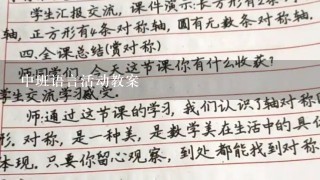 学生汇报交流,课件演示:长方形有2条
轴,正方形有4条对称轴,圆有无数条对称轴.
四.全课总结(赏对称)
今天这节课你有什么收获?
中班语言活动教案
学生交流学习
师:通过这节课的学习,我们认识了轴对称
形.对称,是一种美,是数学美在生活中的具
体现.只要你留心观察,到处都能找到对称